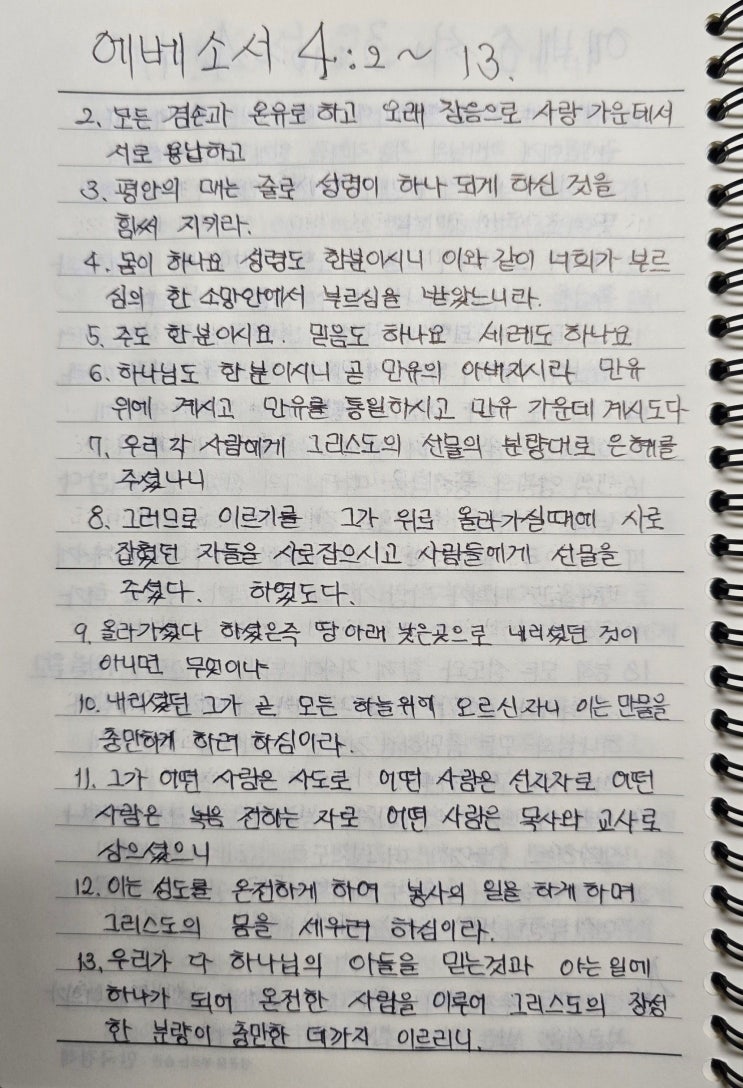 에베소서 4:2~13.
2. 모든 겸손과 온유로 하고 오래 참음으로 사랑 가운데서
서로 용납하고
3. 평안의 매는 줄로 성령이 하나 되게 하신 것을
힘써 지키라.
4. 몸이 하나요 성령도 한분이시니 이와 같이 너희가 부르
심의 한 소망안에서 부르심을 받았느니라.
5. 주도 한분이시요. 믿음도 하나요 세례도 하나요
6. 하나님도 한분이시니 곧 만유의 아버지시라 만유
위에 계시고 만유를 통일하시고 만유 가운데 계시도다
7. 우리 각 사람에게 그리스도의 선물의 분량대로 은혜를
주셨나니
8. 그러므로 이르기를 그가 위로 올라가실때에 사로
잡혔던 자들을 사로잡으시고 사람들에게 선물을
주셨다. 하였도다.
9. 올라가셨다 하셨은즉 땅 아래 낮은곳으로 내리셨던 것이
아니면 무엇이냐
10. 내리셨던 그가 곧 모든 하늘위에 오르신자니 이는 만물을
충만하게 하려 하심이라.
11. 그가 어떤 사람은 사도로 어떤 사람은 선지자로 어떤
사람은 복음 전하는 자로 어떤 사람은 목사와 교사로
삼으셨으니
12. 이는 성도를 온전하게 하여 봉사의 일을 하게 하며
그리스도의 몸을 세우려 하심이라.
13. 우리가 다 하나님의 아들을 믿는것과 아는 일에
하나가 되어 온전한 사람을 이루어 그리스도의 장성
한 분량이 충만한 데까지 이르리니.